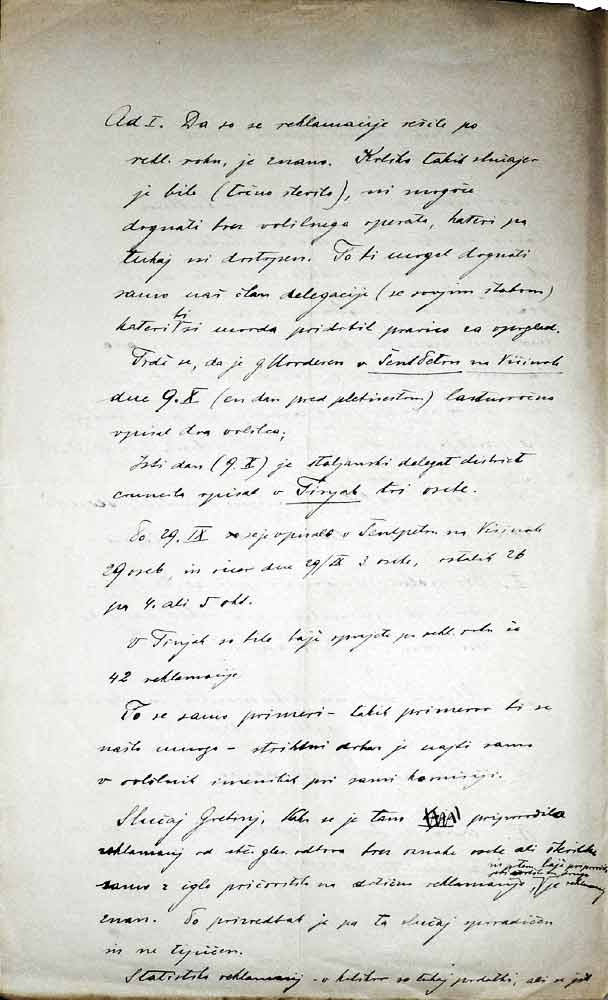 Ad I. Da so se reklamacije rešile po
rekl. roku, je znano. Koliko takih slučajev
je bilo (točno število), ni mogoče
dognati brez volilnega operata, kateri pa
tukaj ni dostopen. To bi mogel dognati
samo naš član delegacije (se svojim štabom)
kateri bi si morda pridobil pravico za vpogled.
Trdi se, da je g. v Šent Petru na Višinah
dne 9.X (en dan pred plebiscitom) lastnoročno
vpisal dva volilca;
Isti dan (9.X) je italjanski delegat district
councila vpisal v Tinjah tri osebe.
Po 29. IX se je vpisalo v Šentpetru na Višinah
29 oseb, in sicer dne 29/IX 3 osebe, ostalih 26
pa 4. ali 5 okt.
V Tinjah so bile baje sprejete po rekl. roku še
42 reklamacije
To so samo primeri - takih primerov bi se
našlo mnogo - dokaz je najti samo
v volilnih imenikih pri sami komisiji.
Slučaj Grebinj. Kako se je tam priporočila
reklamacij od glas. odbora brez oznake osebe ali številke
samo z iglo na reklamacijo, je
znan. Po prireditvah je pa ta slučaj sporadičen
in ne tipičen.
Statistika reklamacij - v kolikor so tukaj podatki, ali se